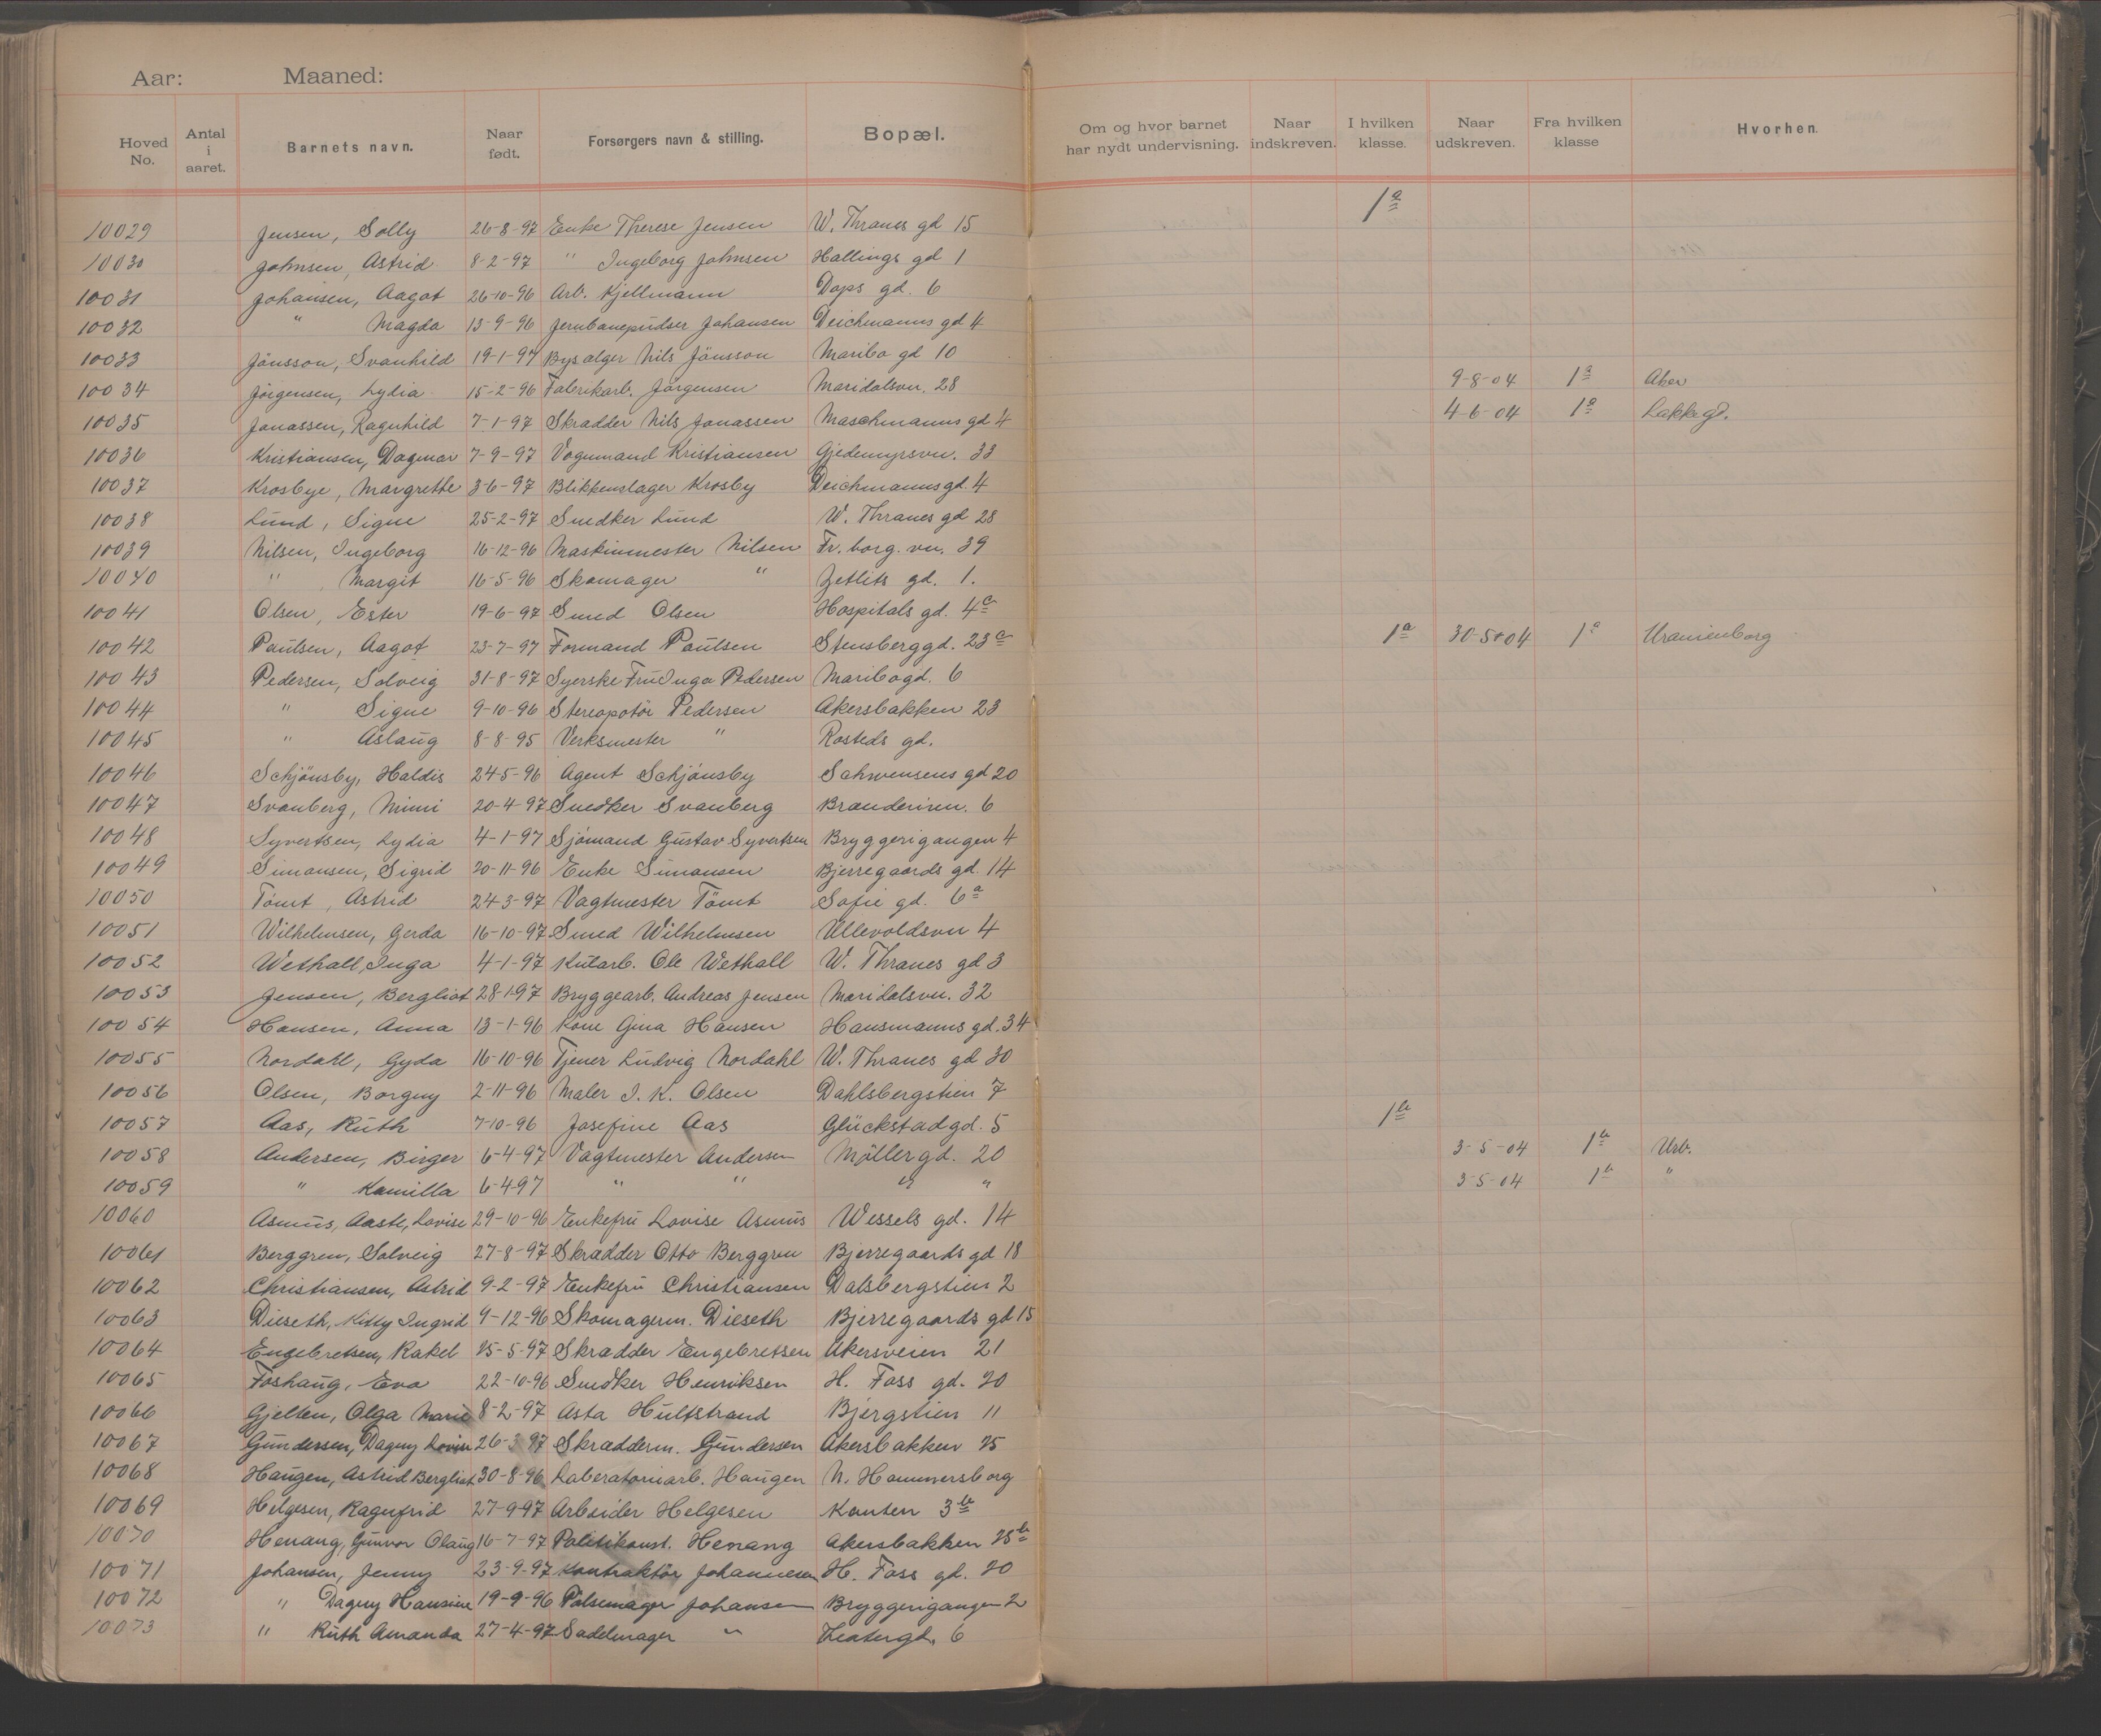 Aar: Maaned:
Hoved No. Antal i aaret. Barnets navn. Naar født. Forsørgers navn & stilling. Bopæl. Om og hvor barnet har nydt undervisning. Naar indskreven. I hvilken klasse. Naar udskreven. Fra hvilken klasse Hvorhen.
1a
10029 Jensen, Solly 26-8-97 Enke Therese Jensen W. Thranes gd 15
10030 Johnsen, Astrid 8-2-97 " Ingeborg Johnsen Hallings gd 1
10031 Johansen, Aagot 26-10-96 Arb. Kjellmann Dops gd. 6
10032 " Magda 13-9-96 Jernbanepudser Johansen Deichmanns gd 4
10033 Jönsson, Svanhild 19-1-97 Bysælger Nils Jönsson Maribo gd 10
10034 Jörgensen, Lydia 15-2-96 Fabrikarb. Jörgensen Maridalsvn. 28 9-8-04 1a Aker
10035 Jonassen, Ragnhild 7-1-97 Skradder Nils Jonassen Maschmanns gd 4 4-6-04 1a Lakkegd.
10036 Kristiansen, Dagmar 7-9-97 Vognmand Kristiansen Gjedemyrsvn. 33
10037 Krosbye, Margrethe 3-6-97 Blikkenslager Krosby Deichmannsgd. 4
10038 Lund, Signe 25-2-97 Snedker Lund W. Thranes gd 28
10039 Nilsen, Ingeborg 16-12-96 Maskinmester Nilsen Fr. borg. vn. 39
10040 " Margit 16-5-96 Skomager " Zetlits gd. 1.
10041 Olsen, Ester 19-6-97 Smed Olsen Hospitals gd. 4c
10042 Paulsen, Aagot 23-7-97 Formand Paulsen Stensberggd. 23c 1a 30-5-04 1a Uranienborg
10043 Pedersen, Solveig 31-8-97 Syerske Fru Inga Pedersen Maribogd. 6
10044 " Signe 9-10-96 Stereopotör Pedersen Akersbakken 23
10045 " Aslaug 8-8-95 Verksmester " Rosteds gd.
10046 Schjönsby, Haldis 24-5-96 Agent Schjönsby Schwensens gd 20
10047 Svanberg, Mimi 20-4-97 Snedker Svanberg Brænderivn. 6
10048 Syvertsen, Lydia 4-1-97 Sjömand Gustav Syvertsen Bryggerigangen 4
10049 Simonsen, Sigrid 20-11-96 Enke Simonsen Bjerregaards gd. 14
10050 Tömt, Astrid 24-3-97 Vagtmester Tömt Sofie gd. 6a
10051 Wilhelmsen, Gerda 16-10-97 Smed Wilhelmsen Ullevoldsvn 4
10052 Wethall, Inga 4-1-97 Kularb. Ole Wethall W. Thranes gd 3
10053 Jensen, Bergliot 28-1-97 Bryggearb. Andreas Jensen Maridalsvn. 32
10054 Hansen, Anna 13-1-96 Kone Gina Hansen Hausmanns gd. 34
10055 Nordahl, Gyda 16-10-96 Tjener Ludvig Nordahl W. Thranes gd 30
10056 Olsen, Borguy 2-11-96 Maler I. K. Olsen Dahlsbergstien 7
10057 Aas, Ruth 7-10-96 Josefine Aas Glückstadgd. 5 1b
10058 Andersen, Birger 6-4-97 Vagtmester Andersen Möllergd. 20 3-5-04 1b Urb.
10059 " Kamilla 6-4-97 " " " " 3-5-04 1b "
10060 Asmus, Aaste, Lovise 29-10-96 Enkefru Lovise Asmus Wessels gd. 14
10061 Berggren, Solveig 27-8-97 Skrædder Otto Berggren Bjerregaards gd 18
10062 Christiansen, Astrid 9-2-97 Enkefru Christiansen Dalsbergstien 2
10063 Dieseth, Kitty Ingrid 9-12-96 Skomagerm. Dieseth Bjerregaards gd 15
10064 Engebretsen, Rakel 25-5-97 Skrædder Engebretsen Akersveien 21
10065 Foshaug, Eva 22-10-96 Snedker Henriksen H. Foss gd. 20
10066 Gjelten, Olga Marie 8-2-97 Asta Hultstrand Bjergstien 11
10067 Gundersen, Dagny Lovise 26-3-97 Skrædderm. Gundersen Akersbakken 25
10068 Haugen, Astrid Bergliot 30-8-96 Laberatoriarb. Haugen N. Hammersborg
10069 Helgesen, Ragnfrid 27-9-97 Arbeider Helgesen Kanten 3b
10070 Henang, Gunvor Olaug 16-7-97 Politikonst. Henang Akersbakken 25b
10071 Johansen, Jenny 23-9-97 Kontraktör Johannesen H. Foss gd. 20
10072 " Dagny Hansine 19-9-96 Pölsemager Johansen Bryggerigangen 2
10073 " Ruth Amanda 27-4-97 Sadelmager " Teatergd. 6